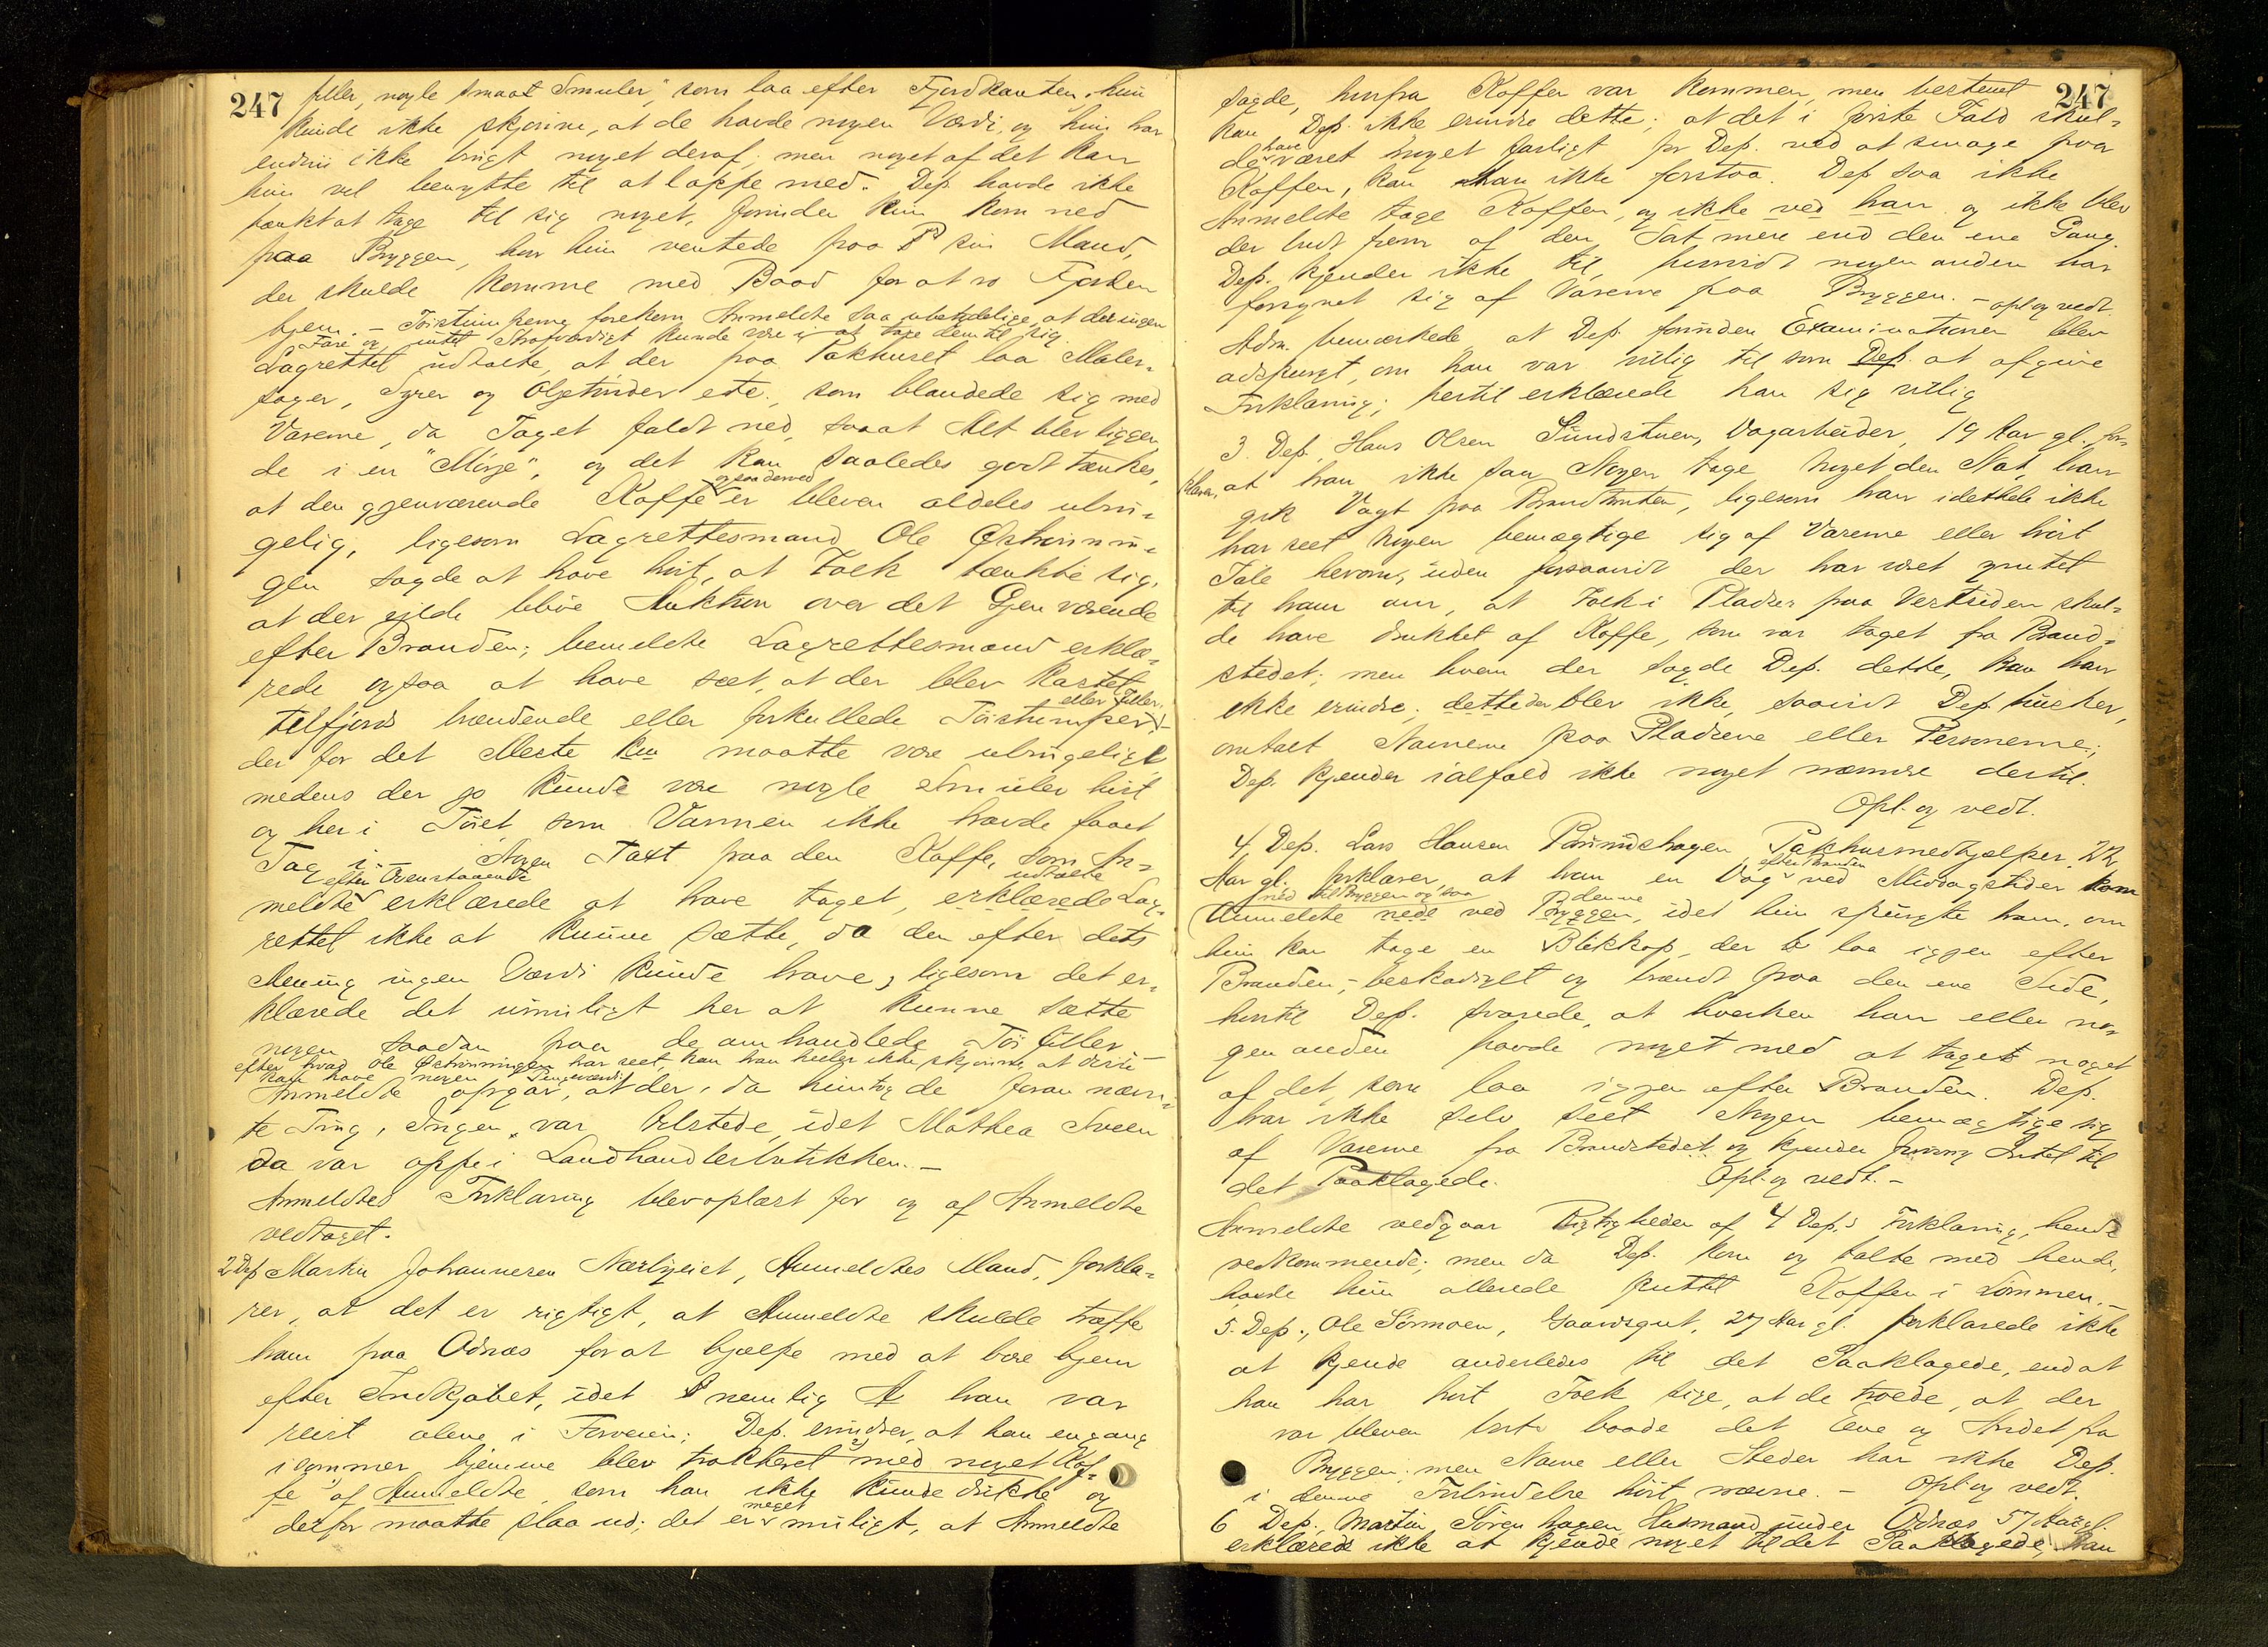 247
filler, nogle smaat Smuler", som laa efter Fjordkanten. hun
kunde ikke skjønne, at de havde nogen Værdi, og hun har
endnu ikke brugt noget deraf; men noget af det kan
hun vel benytte til at lappe med. Dep. havde ikke
tænkt at tage til sig noget, forinden hun kom ned
paa Bryggen, hvor hun ventede paa sin Mand,
der skulde komme med Baad for at ro Fjorden
hjem. – Töistumperne forekom Anmeldte saa ubetydelige, at der ingen
Fare og intet Strafværdigt kunde være i at tage dem til sig.
Lagrettet udtalte, at der paa Pakhuset laa Maler-
sager, Syrer og Oljetönder etc., som blandede sig med
Varerne, da Taget faldt ned, saaat Alt blev liggen-
de i en "Mörje", og det kan saaledes godt tænkes,
at den gjenværende Kaffe ogsaa derved er bleven aldeles ubru-
gelig, ligesom Lagrettesmand Ole Østhönnin-
gen sagde at have hört, at Folk tænkte sig,
at der vilde blive Auktion over det Gjenværende
efter Branden; bemeldte Lagrettesmand erklæ-
rede ogsaa at have seet, at der blev kastet
tilfjords brændende eller forkullede Töistumper eller Filler, –
der for det Meste kun maatte være ubrugeligt,
medens der jo kunde være nogle Smuler hist
og her i Töiet, som Varmen ikke havde faaet
Tag i. – Nogen Taxt paa den Kaffe, som An-
meldte efter Ovenstaaende erklærede at have taget, udtalte Lag-
rettet ikke at kunne sætte, da den efter dets
Mening ingen Værdi kunde have, ligesom det er-
klærede det umuligt her at kunne sætte
nogen saadan paa de omhandlede Töifiller –
efter hvad Ole Østhönningen har seet, kan han heller ikke skjönne, at disse
kan have nogen Pengeværdi
Anmeldte opgav, at der, da hun tog de foran nævn-
te Ting, Ingen var tilstede, idet Mathea Sveen
da var oppe i Landhandlerbutikken. –
Anmeldtes Forklaring blev oplæst for og af Anmeldte
vedtaget.
2 Dep Martin Johannesen Nærbyeiet, Anmeldtes Mand, forkla-
rer, at det er rigtigt, at Anmeldte skulde træffe
ham paa Odnæs for at hjælpe med at bære hjem
efter Indkjöbet, idet nemlig han var
reist alene i Forveien; Dep. erindrer, at han engang
isommer hjemme blev trakteret med noget Kaf-
fe" af Anmeldte, som han ikke kunde drikke og
derfor maatte slaa ud; det er meget muligt, at Anmeldte
247
sagde, hvorfra Kaffen var kommen, men bestemt
kan Dep. ikke erindre dette; at det i förste Fald skul-
de have været noget farligt for Dep. ved at smage paa
Kaffen, kan han ikke forstaa. Dep saa ikke
Anmeldte tage Kaffen, og ikke ved han og ikke blev
der budt frem af den Sat, mere end den ene Gang.
Dep. kjender ikke til, hvorvidt nogen anden har
forsynet sig af Varerne paa Bryggen. – opl. og vedt.
Adm. bemærkede, at Dep. forinden Examinationen blev
adspurgt, om han var villig til som Dep. at afgive
Forklaring; hertil erklærede han sig villig
3. Dep, Hans Olsen Sundstuen, Vagarbeider, 19 Aar gl. for-
klarer, at han ikke saa Nogen tage noget den Nat, han
gik Vagt paa Brandtomten, ligesom han idethele ikke
har seet Nogen bemægtige sig af Varerne eller hört
Tale herom, uden forsaavidt der har været ymtet
til ham om, at Folk i Pladser paa Vestsiden skul-
de have drukket af Kaffe, som var taget fra Brand-
stedet; men hvem der sagde Dep. dette, kan han
ikke erindre; der blev ikke, saavidt Dep. husker,
omtalt Navnene paa Pladsene eller Personerne;
Dep. kjender ialfald ikke noget nærmere dertil.
Opl. og vedt.
4 Dep. Lars Hansen Pakhusmedhjælper, 22
Aar gl. forklarer, at han en Dag efter Branden ved Middagstider kom
ned til Bryggen og saa
Anmeldte nede ved denne, idet hun spurgte ham, om
hun kan tage en Blikkop, der laa igjen efter
Branden, – beskadiget og brændt paa den ene Side,
hvortil Dep. svarede, at hverken han eller no-
gen anden havde noget med at tage noget
af det, som laa igjen efter Branden. Dep.
har ikke selv seet Nogen bemægtige sig
af Varerne fra Brandstedet og kjender forövrig Intet til
det Paaklagede. Opl. og vedt. –
Anmeldte vedgaar Rigtigheden af 4 Dep.s Forklaring, hende
vedkommende; men da Dep. kom og talte med hende,
havde hun allerede puttet Kaffen i Lommen. –
5. Dep., Ole Sörmoen, Gaardsgut, 27 Aar gl. forklarede ikke
at kjende anderledes til det Paaklagede, end at
han har hört Folk sige, at de troede, at der
var bleven borte baade det Ene og Andet fra
Bryggen; men Navne eller Steder har ikke Dep.
i denne Forbindelse hört nævne. – Opl og vedt.
6 Dep., Martin Sörenhagen Husmand under Odnæs 57 Aar gl.
erklærede ikke at kjende noget til det Paaklagede, Han